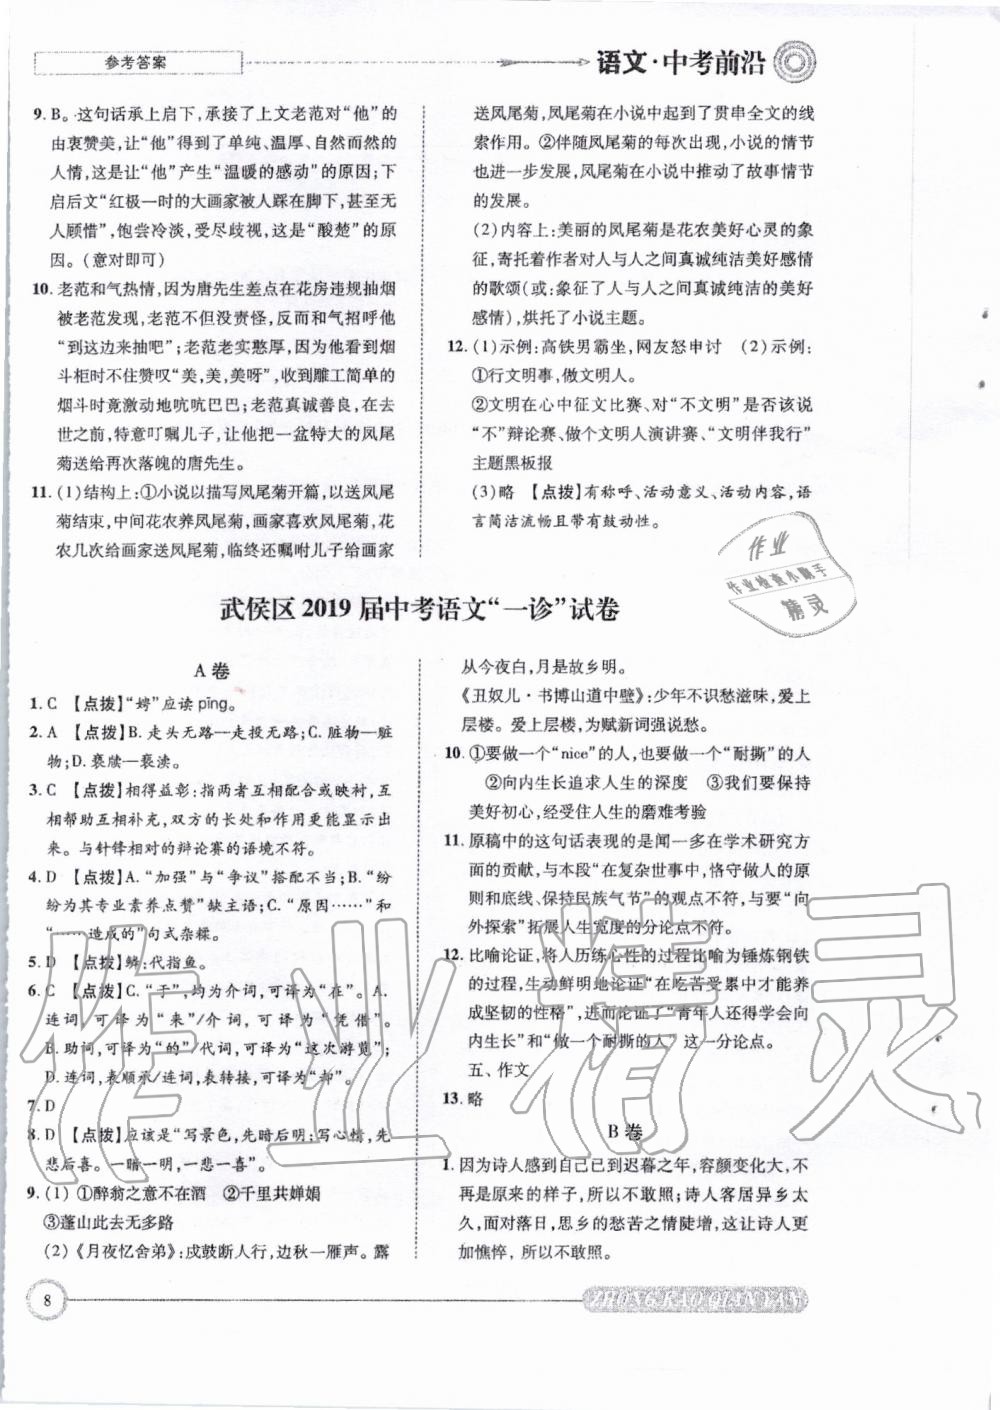 参考答案
语文·中考前沿
9. B。这句话承上启下,承接了上文老范对“他”的
由衷赞美,让“他”得到了单纯、温厚、自然而然的
人情,这是让“他”产生“温暖的感动”的原因;下
启后文“红极一时的大画家被人踩在脚下,甚至无
人顾惜”,饱尝冷淡,受尽歧视,这是“酸楚”的原
因。(意对即可)
10. 老范和气热情,因为唐先生差点在花房违规抽烟
被老范发现,老范不但没责怪,反而和气招呼他
“到这边来抽吧”;老范老实憨厚,他因看到唐的烟
斗柜时不住赞叹“美,美,美呀”,收到雕工简单的
烟斗时竟激动地吭吭巴巴;老范真诚善良,在去
世之前,特意叮嘱儿子,让他把一盆特大的凤尾
菊送给再次落魄的唐先生。
11. (1)结构上:①小说以描写凤尾菊开篇,以送凤尾
菊结束,中间花农养凤尾菊,画家喜欢凤尾菊,花
农几次给画家送凤尾菊,临终还嘱咐儿子给画家
送凤尾菊,凤尾菊在小说中起到了贯串全文的线
索作用。②伴随凤尾菊的每次出现,小说的情节
也进一步发展,凤尾菊在小说中推动了故事情节
的发展。
(2)内容上:美丽的凤尾菊是花农美好心灵的象
征,寄托着作者对人与人之间真诚纯洁美好感情
的歌颂(或:象征了人与人之间真诚纯洁的美好
感情),烘托了小说主题。
12. (1)示例:高铁男霸坐,网友怒申讨 (2)示例:
①行文明事,做文明人。
②文明在心中征文比赛、对“不文明”是否该说
“不”辩论赛、做个文明人演讲赛、“文明伴我行”
主题黑板报
(3)略 【点拨】有称呼、活动意义、活动内容,语
言简洁流畅且带有鼓动性。
作业
作业检查小助手
精灵
武侯区 2019 届中考语文“一诊”试卷
A 卷
1. C 【点拨】“娉”应读 pīng。
2. A 【点拨】B. 走头无路—走投无路;C. 脏物—赃
物;D. 亵牍—亵渎。
3. C 【点拨】相得益彰:指两者互相配合或映衬,互
相帮助互相补充,双方的长处和作用更能显示出
来。与针锋相对的辩论赛的语境不符。
4. D 【点拨】A. “加强”与“争议”搭配不当;B. “纷
纷为其专业素养点赞”缺主语;C. “原因……”和
“……造成的”句式杂糅。
5. D 【点拨】鳞:代指鱼。
6. C 【点拨】C. “于”,均为介词,可译为“在”。A.
连词,可译为“来”/介词,可译为“凭借”。
B. 助词,可译为“的”/代词,可译为“这次游览”;
D. 连词,表顺承/连词,表转接,可译为“却”。
7. D
8. D 【点拨】应该是“写景色,先暗后明;写心情,先
悲后喜。一暗一明,一悲一喜”。
9. (1) ①醉翁之意不在酒 ②千里共婵娟
③蓬山此去无多路
(2)《月夜忆舍弟》:戍鼓断人行,边秋一雁声。露
从今夜白,月是故乡明。
《丑奴儿·书博山道中壁》:少年不识愁滋味,爱上
层楼。爱上层楼,为赋新词强说愁。
10. ①要做一个“nice”的人,也要做一个“耐撕”的人
②向内生长追求人生的深度 ③我们要保持
美好初心,经受住人生的磨难考验
11. 原稿中的这句话表现的是闻一多在学术研究方
面的贡献,与本段“在复杂世事中,恪守做人的
原则和底线、保持民族气节”的观点不符,与“向
外探索”拓展人生宽度的分论点不符。
12. 比喻论证,将人历练心性的过程比喻为锤炼钢铁
的过程,生动鲜明地论证“在吃苦受累中才能养
成坚韧的性格”,进而论证了“青年人还得学会向
内生长”和“做一个耐撕的人”这一分论点。
五、作文
13. 略
B 卷
1. 因为诗人感到自己已到迟暮之年,容颜变化大,不
再是原来的样子,所以不敢照;诗人客居异乡太
久,面对落日,思乡的愁苦之情陡增,这让诗人更
加憔悴,所以不敢照。
8
ZHONG KAO QIAN YAN
作业精灵